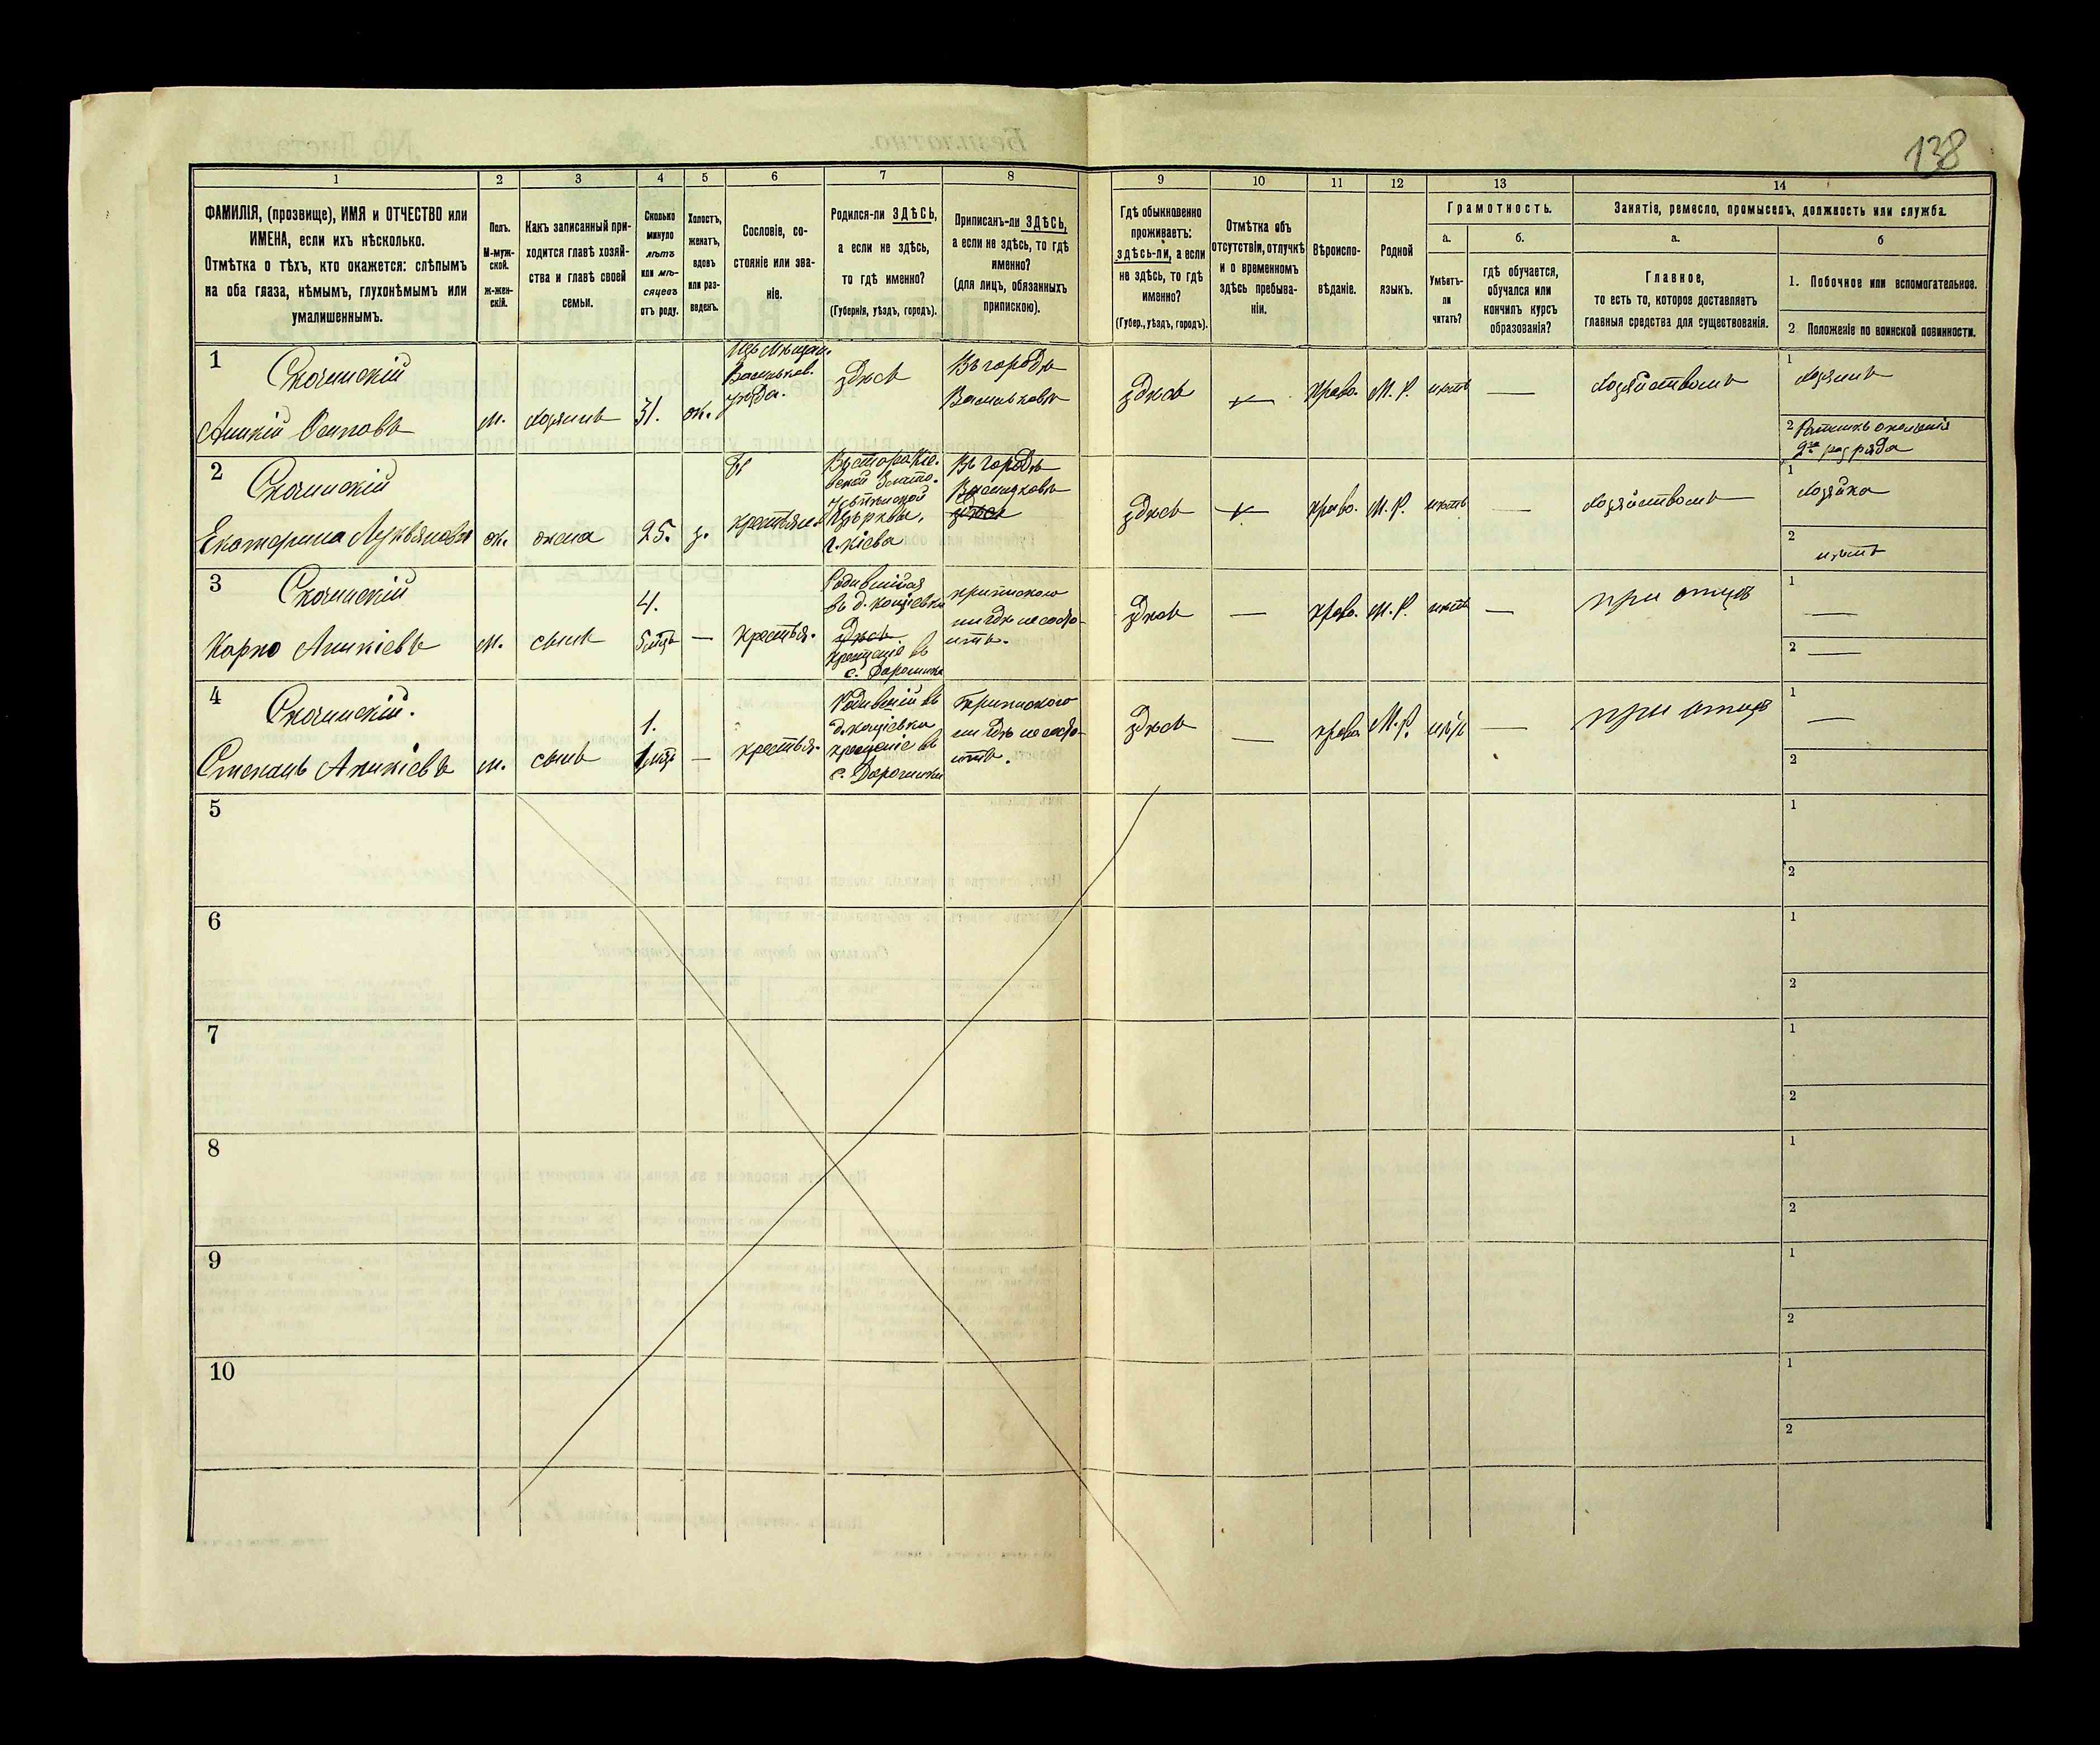 138
1 2 3 4 5 6 7 8 9 10 11 12 13 14
ФАМИЛІЯ, (прозвище), ИМЯ и ОТЧЕСТВО или
ИМЕНА, если ихъ нѣсколько.
Отмѣтка о тѣхъ, кто окажется: слѣпымъ
на оба глаза, нѣмымъ, глухонѣмымъ или
умалишеннымъ.
Полъ.
М-муж-
ской.
ж-жен-
скій.
Какъ записанный при-
ходится главѣ хозяй-
ства и главѣ своей
семьи.
Сколько
минуло
лѣтъ
или мѣ-
сяцевъ
отъ роду.
Холостъ,
женатъ,
вдовъ
или раз-
веденъ.
Сословіе, со-
стояніе или зва-
ніе.
Родился-ли ЗДѢСЬ,
а если не здѣсь,
то гдѣ именно?
(Губернія, уѣздъ, городъ).
Приписанъ-ли ЗДѢСЬ,
а если не здѣсь, то гдѣ
именно?
(для лицъ, обязанныхъ
припискою).
Гдѣ обыкновенно
проживаетъ:
здѣсь-ли, а если
не здѣсь, то гдѣ
именно?
(Губер., уѣздъ, городъ).
Отмѣтка объ
отсутствіи, отлучкѣ
и о временномъ
здѣсь пребыва-
ніи.
Вѣроиспо-
вѣданіе.
Родной
языкъ.
Грамотность.
а.
Умѣетъ-
ли
читать?
б.
гдѣ обучается,
обучался или
кончилъ курсъ
образованія?
Занятіе, ремесло, промыселъ, должность или служба.
а.
Главное,
то есть то, которое доставляетъ
главныя средства для существованія.
б
1. Побочное или вспомогательное.
2 Положеніе по воинской повинности.
1
Скочинскій
Аникій Осиповъ
м.
хозяинъ
31.
ж.
Изъ мѣщан.
Васильков.
уѣзда.
здѣсь
Въ городѣ
Васильковѣ
здѣсь
право.
М. Р.
нѣтъ
—
хозяйствомъ
1
хозяинъ
2 Ратникъ ополченія
2го разряда
2
Скочинскій
Екатерина Лукьянова
ж.
жена
25.
з.
крестьян.
церквы,
г. Кіева
Въ городѣ
Васильковѣ
здѣсь
здѣсь
право.
М. Р.
нѣтъ
хозяйствомъ
1
хозяйка
2
нѣтъ
3
Скочинскій
Карпо Аникіевъ
м.
сынъ
4.
5 мѣс.
—
крестья.
въ д.
здѣсь
крещеніе въ
с.
припискою
нигдѣ не состо-
итъ.
здѣсь
—
право.
М. Р.
нѣтъ
—
при отцѣ
1
—
2 —
4
Скочинскій.
Степанъ Аникіевъ
м.
сынъ
1.
—
крестья.
въ
д.
крещеніе въ
с.
Припискою
нигдѣ не состо-
итъ.
здѣсь
—
право
М. Р.
нѣтъ
—
при отцѣ
1
—
2
5
1
2
6
1
2
7
1
2
8
1
2
9
1
2
10
1
2